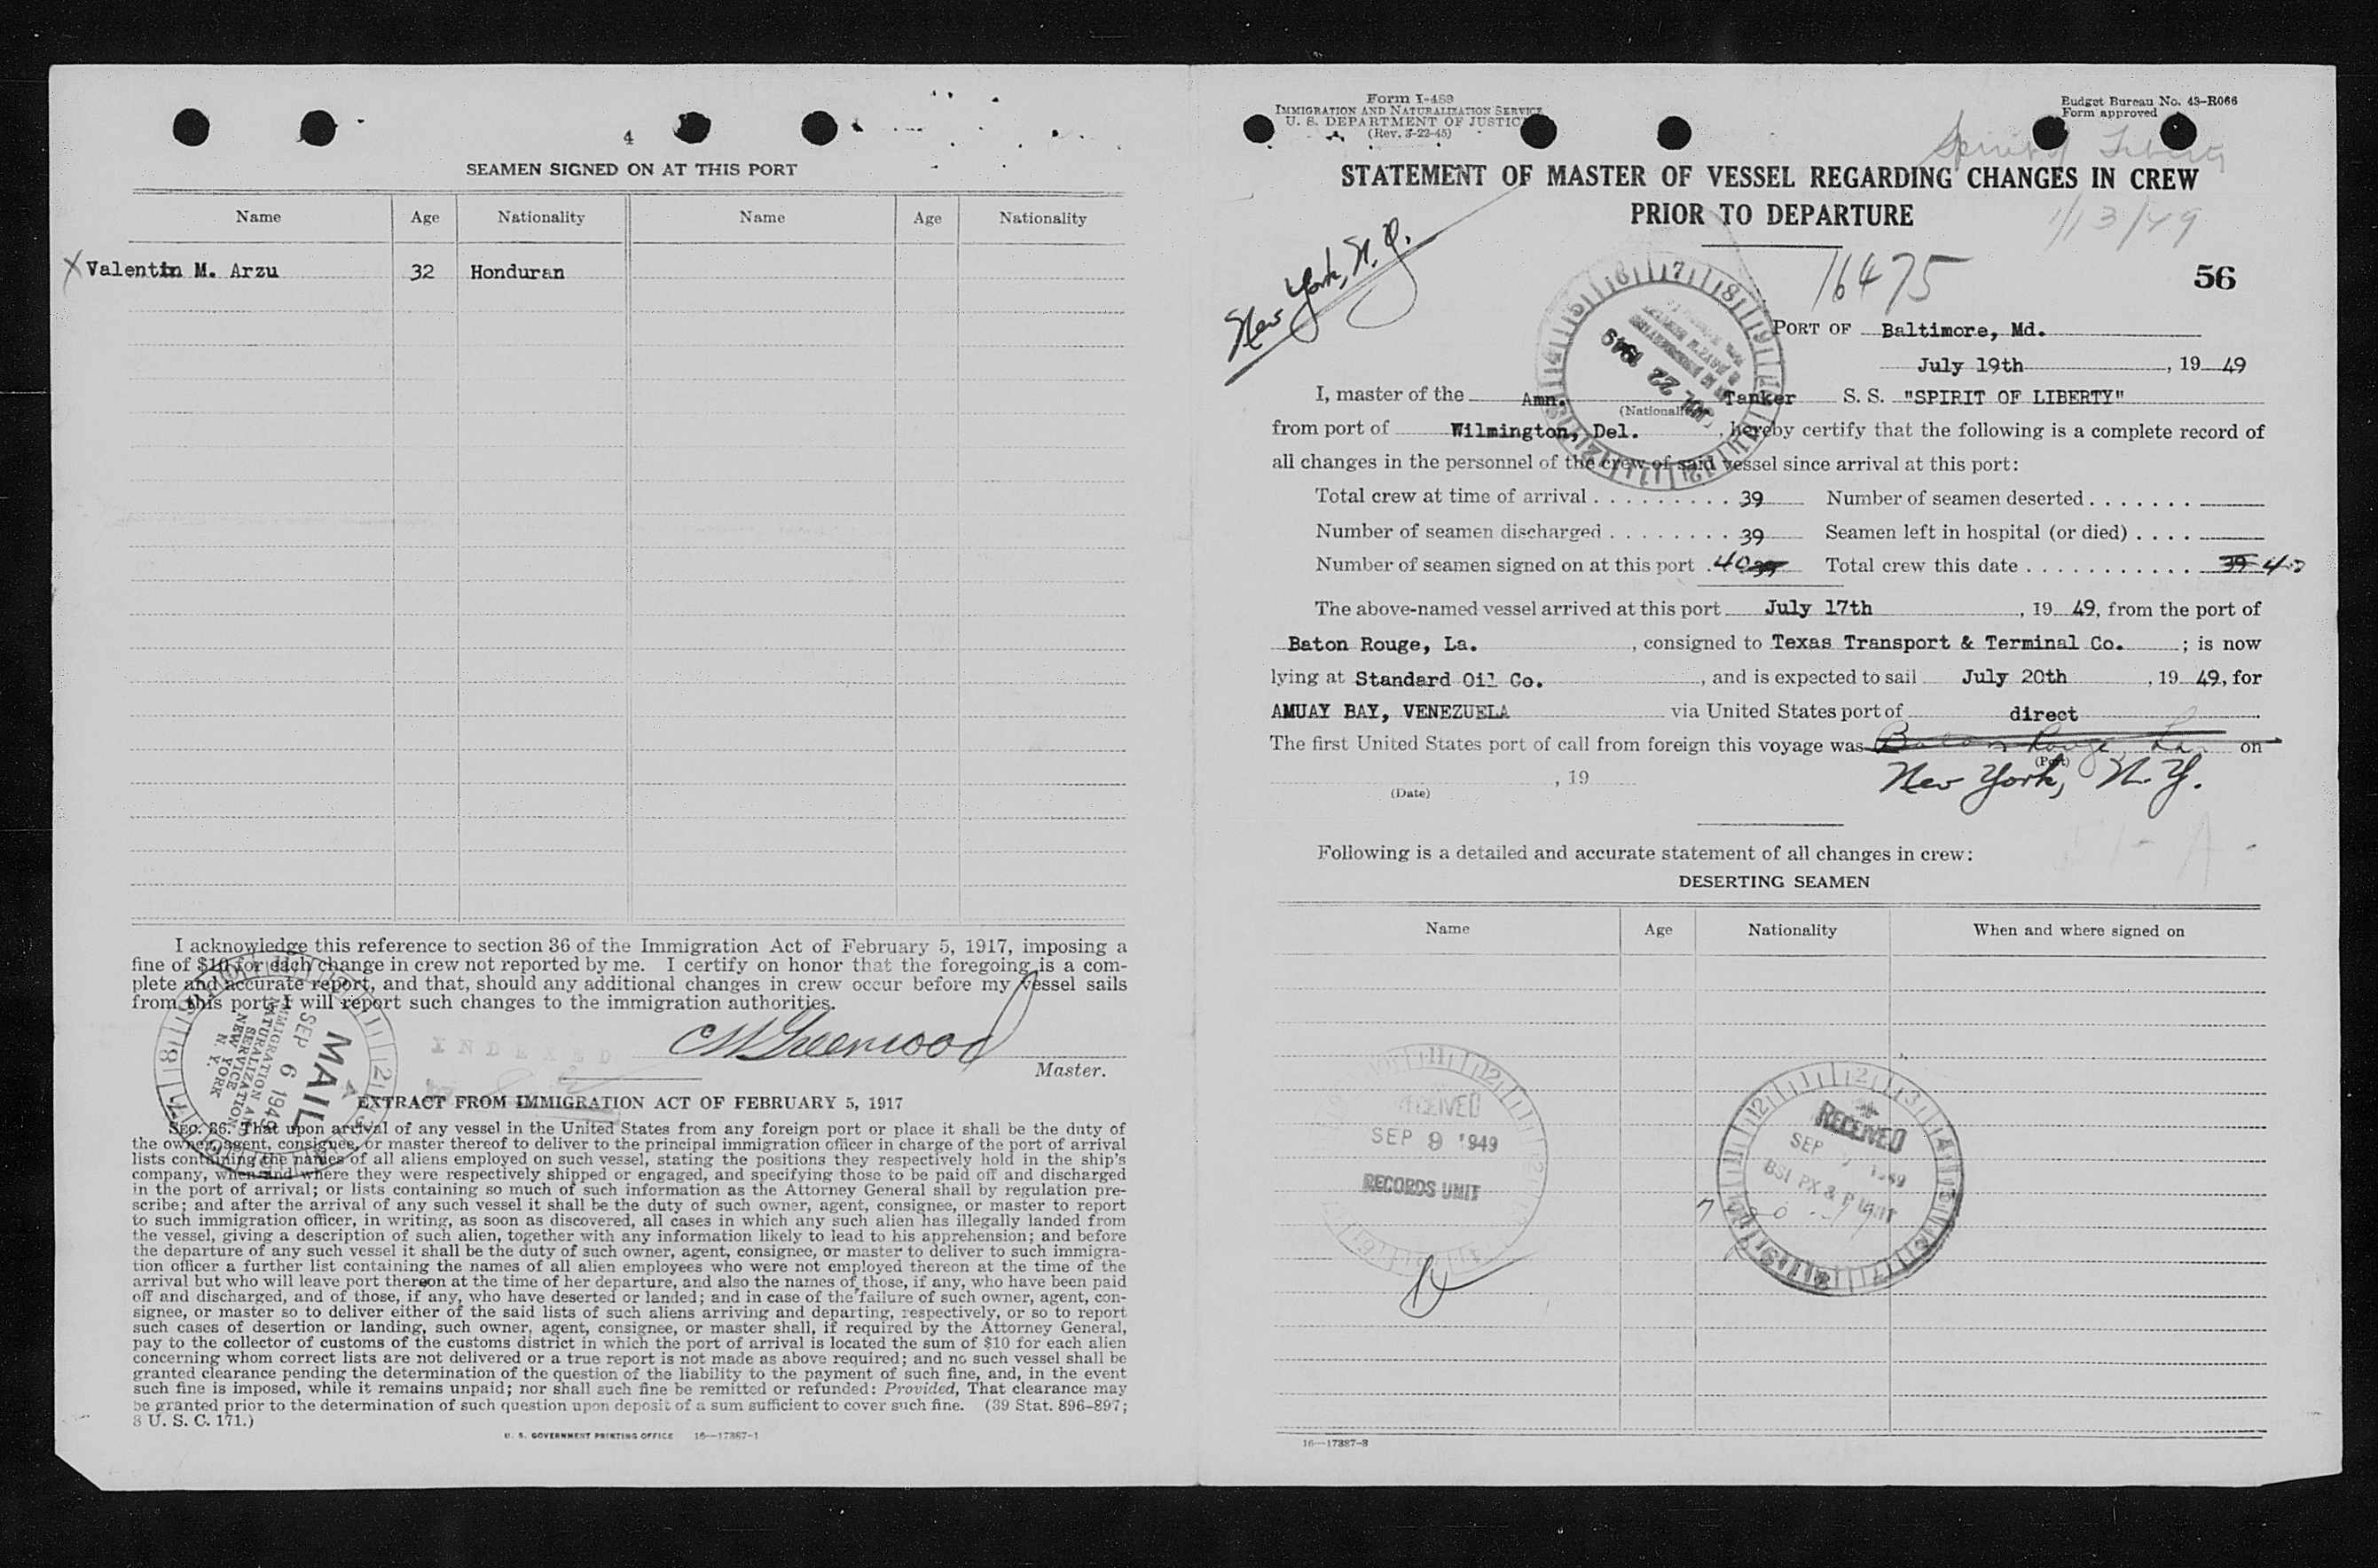 4
SEAMEN SIGNED ON AT THIS PORT
Name Age Nationality Name Age Nationality
X Valentin M. Arzu 32 Honduran
I acknowledge this reference to section 36 of the Immigration Act of February 5, 1917, imposing a
fine of $10 for each change in crew not reported by me. I certify on honor that the foregoing is a com-
plete and accurate report, and that, should any additional changes in crew occur before my vessel sails
from this port, I will report such changes to the immigration authorities.
CW Greenwood
Master.
INDEXED
MAIL
SEP 6 1949
IMMIGRATION AND
NATURALIZATION
SERVICE
NEW YORK
N. Y.
EXTRACT FROM IMMIGRATION ACT OF FEBRUARY 5, 1917
SEC. 36. That upon arrival of any vessel in the United States from any foreign port or place it shall be the duty of
the owner, agent, consignee, or master thereof to deliver to the principal immigration officer in charge of the port of arrival
lists containing the names of all aliens employed on such vessel, stating the positions they respectively hold in the ship's
company, when and where they were respectively shipped or engaged, and specifying those to be paid off and discharged
in the port of arrival; or lists containing so much of such information as the Attorney General shall by regulation pre-
scribe; and after the arrival of any such vessel it shall be the duty of such owner, agent, consignee, or master to report
to such immigration officer, in writing, as soon as discovered, all cases in which any such alien has illegally landed from
the vessel, giving a description of such alien, together with any information likely to lead to his apprehension; and before
the departure of any such vessel it shall be the duty of such owner, agent, consignee, or master to deliver to such immigra-
tion officer a further list containing the names of all alien employees who were not employed thereon at the time of the
arrival but who will leave port thereon at the time of her departure, and also the names of those, if any, who have been paid
off and discharged, and of those, if any, who have deserted or landed; and in case of the failure of such owner, agent, con-
signee, or master so to deliver either of the said lists of such aliens arriving and departing, respectively, or so to report
such cases of desertion or landing, such owner, agent, consignee, or master shall, if required by the Attorney General,
pay to the collector of customs of the customs district in which the port of arrival is located the sum of $10 for each alien
concerning whom correct lists are not delivered or a true report is not made as above required; and no such vessel shall be
granted clearance pending the determination of the question of the liability to the payment of such fine, and, in the event
such fine is imposed, while it remains unpaid; nor shall such fine be remitted or refunded: Provided, That clearance may
be granted prior to the determination of such question upon deposit of a sum sufficient to cover such fine. (39 Stat. 896-897;
8 U. S. C. 171.)
U. S. GOVERNMENT PRINTING OFFICE 16—17387-1
Form I-489
IMMIGRATION AND NATURALIZATION SERVICE
U. S. DEPARTMENT OF JUSTICE
(Rev. 3-22-45)
Budget Bureau No. 43-R066
Form approved
Spirit of Liberty
STATEMENT OF MASTER OF VESSEL REGARDING CHANGES IN CREW
PRIOR TO DEPARTURE
1/13/49
New York, N.Y.
16475
56
JUL 22 1949
PORT OF Baltimore, Md.
July 19th, 19 49
I, master of the Amn. Tanker S. S. "SPIRIT OF LIBERTY"
(Nationality)
from port of Wilmington, Del., hereby certify that the following is a complete record of
all changes in the personnel of the crew of said vessel since arrival at this port:
Total crew at time of arrival . . . . . . . . . . 39 Number of seamen deserted . . . . . . .
Number of seamen discharged . . . . . . . . 39 Seamen left in hospital (or died) . . . .
Number of seamen signed on at this port . 40 39 Total crew this date . . . . . . . . . . . . 39 40
The above-named vessel arrived at this port July 17th, 19 49, from the port of
Baton Rouge, La., consigned to Texas Transport & Terminal Co. ; is now
lying at Standard Oil Co., and is expected to sail July 20th, 19 49, for
AMUAY BAY, VENEZUELA via United States port of direct
The first United States port of call from foreign this voyage was Baton Rouge, La. on
(Port)
New York, N.Y.
, 19
(Date)
51-A
Following is a detailed and accurate statement of all changes in crew:
DESERTING SEAMEN
Name Age Nationality When and where signed on
RECEIVED
SEP 9 1949
RECORDS UNIT
RECEIVED
SEP 1949
BSI PX & P UNIT
16—17387-3